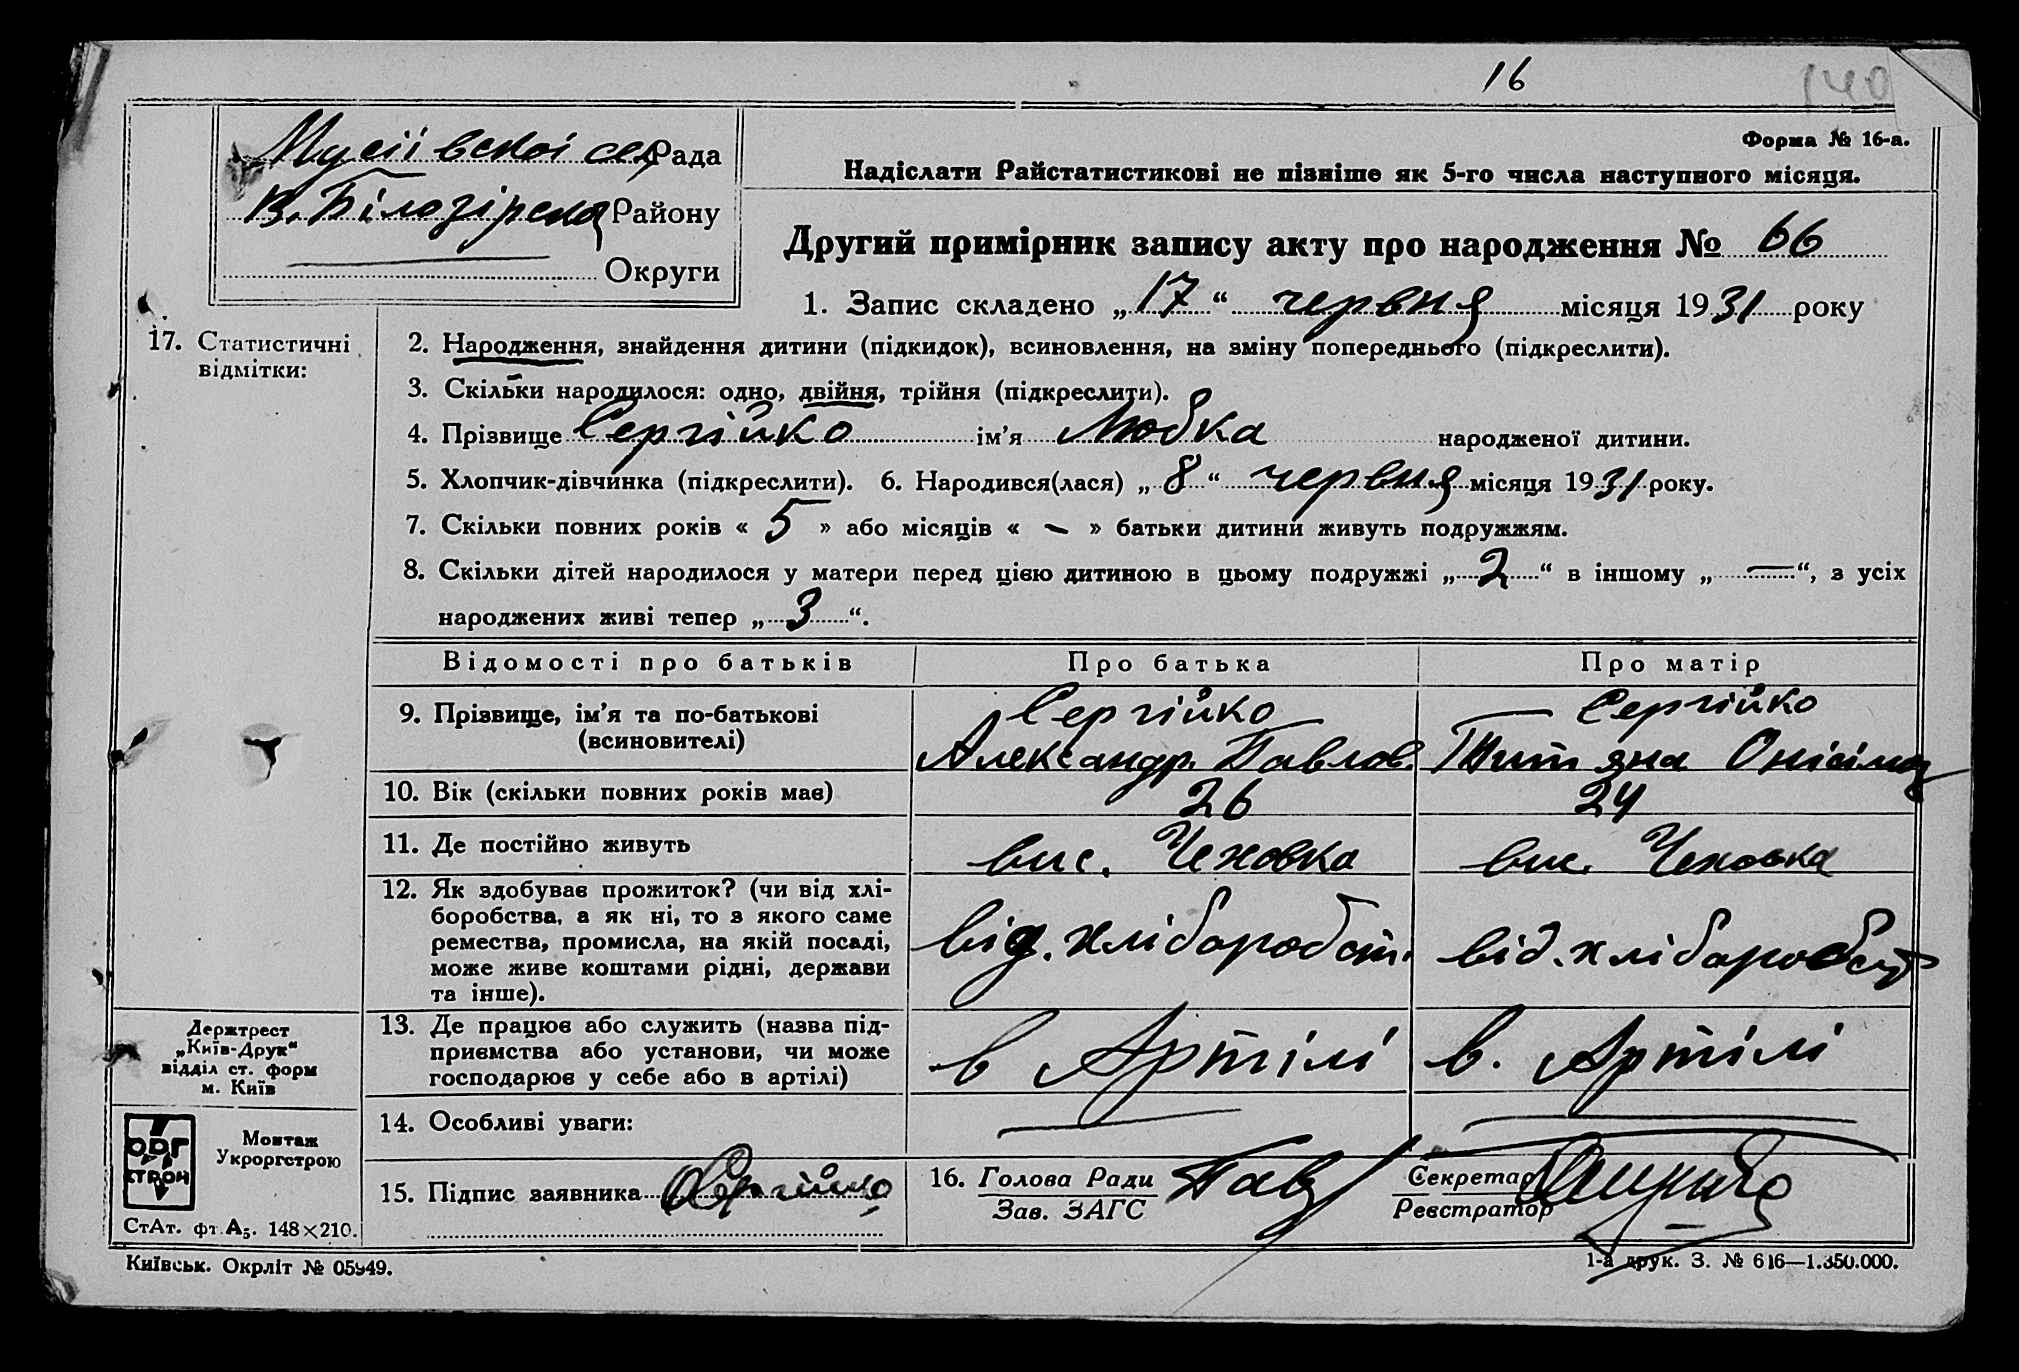 16
140
Мусіївської сел Рада
В. Білозірськ Району
Округи
Форма № 16-а.
Надіслати Райстатистикові не пізніше як 5-го числа наступного місяця.
Другий примірник запису акту про народження № 66
1. Запис складено „17“ червня місяця 1931 року
17. Статистичні відмітки:
2. Народження, знайдення дитини (підкидок), всиновлення, на зміну попереднього (підкреслити).
3. Скільки народилося: одно, двійня, трійня (підкреслити).
4. Прізвище Сергійко ім’я Любка народженої дитини.
5. Хлопчик-дівчинка (підкреслити). 6. Народився(лася) „8“ червня місяця 1931 року.
7. Скільки повних років « 5 » або місяців « – » батьки дитини живуть подружжям.
8. Скільки дітей народилося у матери перед цією дитиною в цьому подружжі „2“ в іншому „—“, з усіх
народжених живі тепер „3“.
Відомості про батьків Про батька Про матір
9. Прізвище, ім’я та по-батькові Сергійко Сергійко
(всиновителі) Александр. Павлов. Титяна Онісімов
10. Вік (скільки повних років має) 26 24
11. Де постійно живуть вис. Чеховка вис. Чеховка
12. Як здобуває прожиток? (чи від хлі-
боробства, а як ні, то з якого саме
ремества, промисла, на якій посаді, від. хліборобст. від. хліборобст
може живе коштами рідні, держави
та інше).
13. Де працює або служить (назва під-
приємства або установи, чи може в Артілі в. Артілі
господарює у себе або в артілі)
14. Особливі уваги:
15. Підпис заявника Сергійко
16. Голова Ради
Зав. ЗАГС
Секретар
Реєстратор
Держтрест
„Київ-Друк“
відділ ст. форм
м. Київ
ОРГ
СТРОЙ
Монтаж
Укроргстрою
СтАт. фт. А₅. 148×210.
Київськ. Окрліт № 05949.
1-а друк. З. № 616—1.350.000.